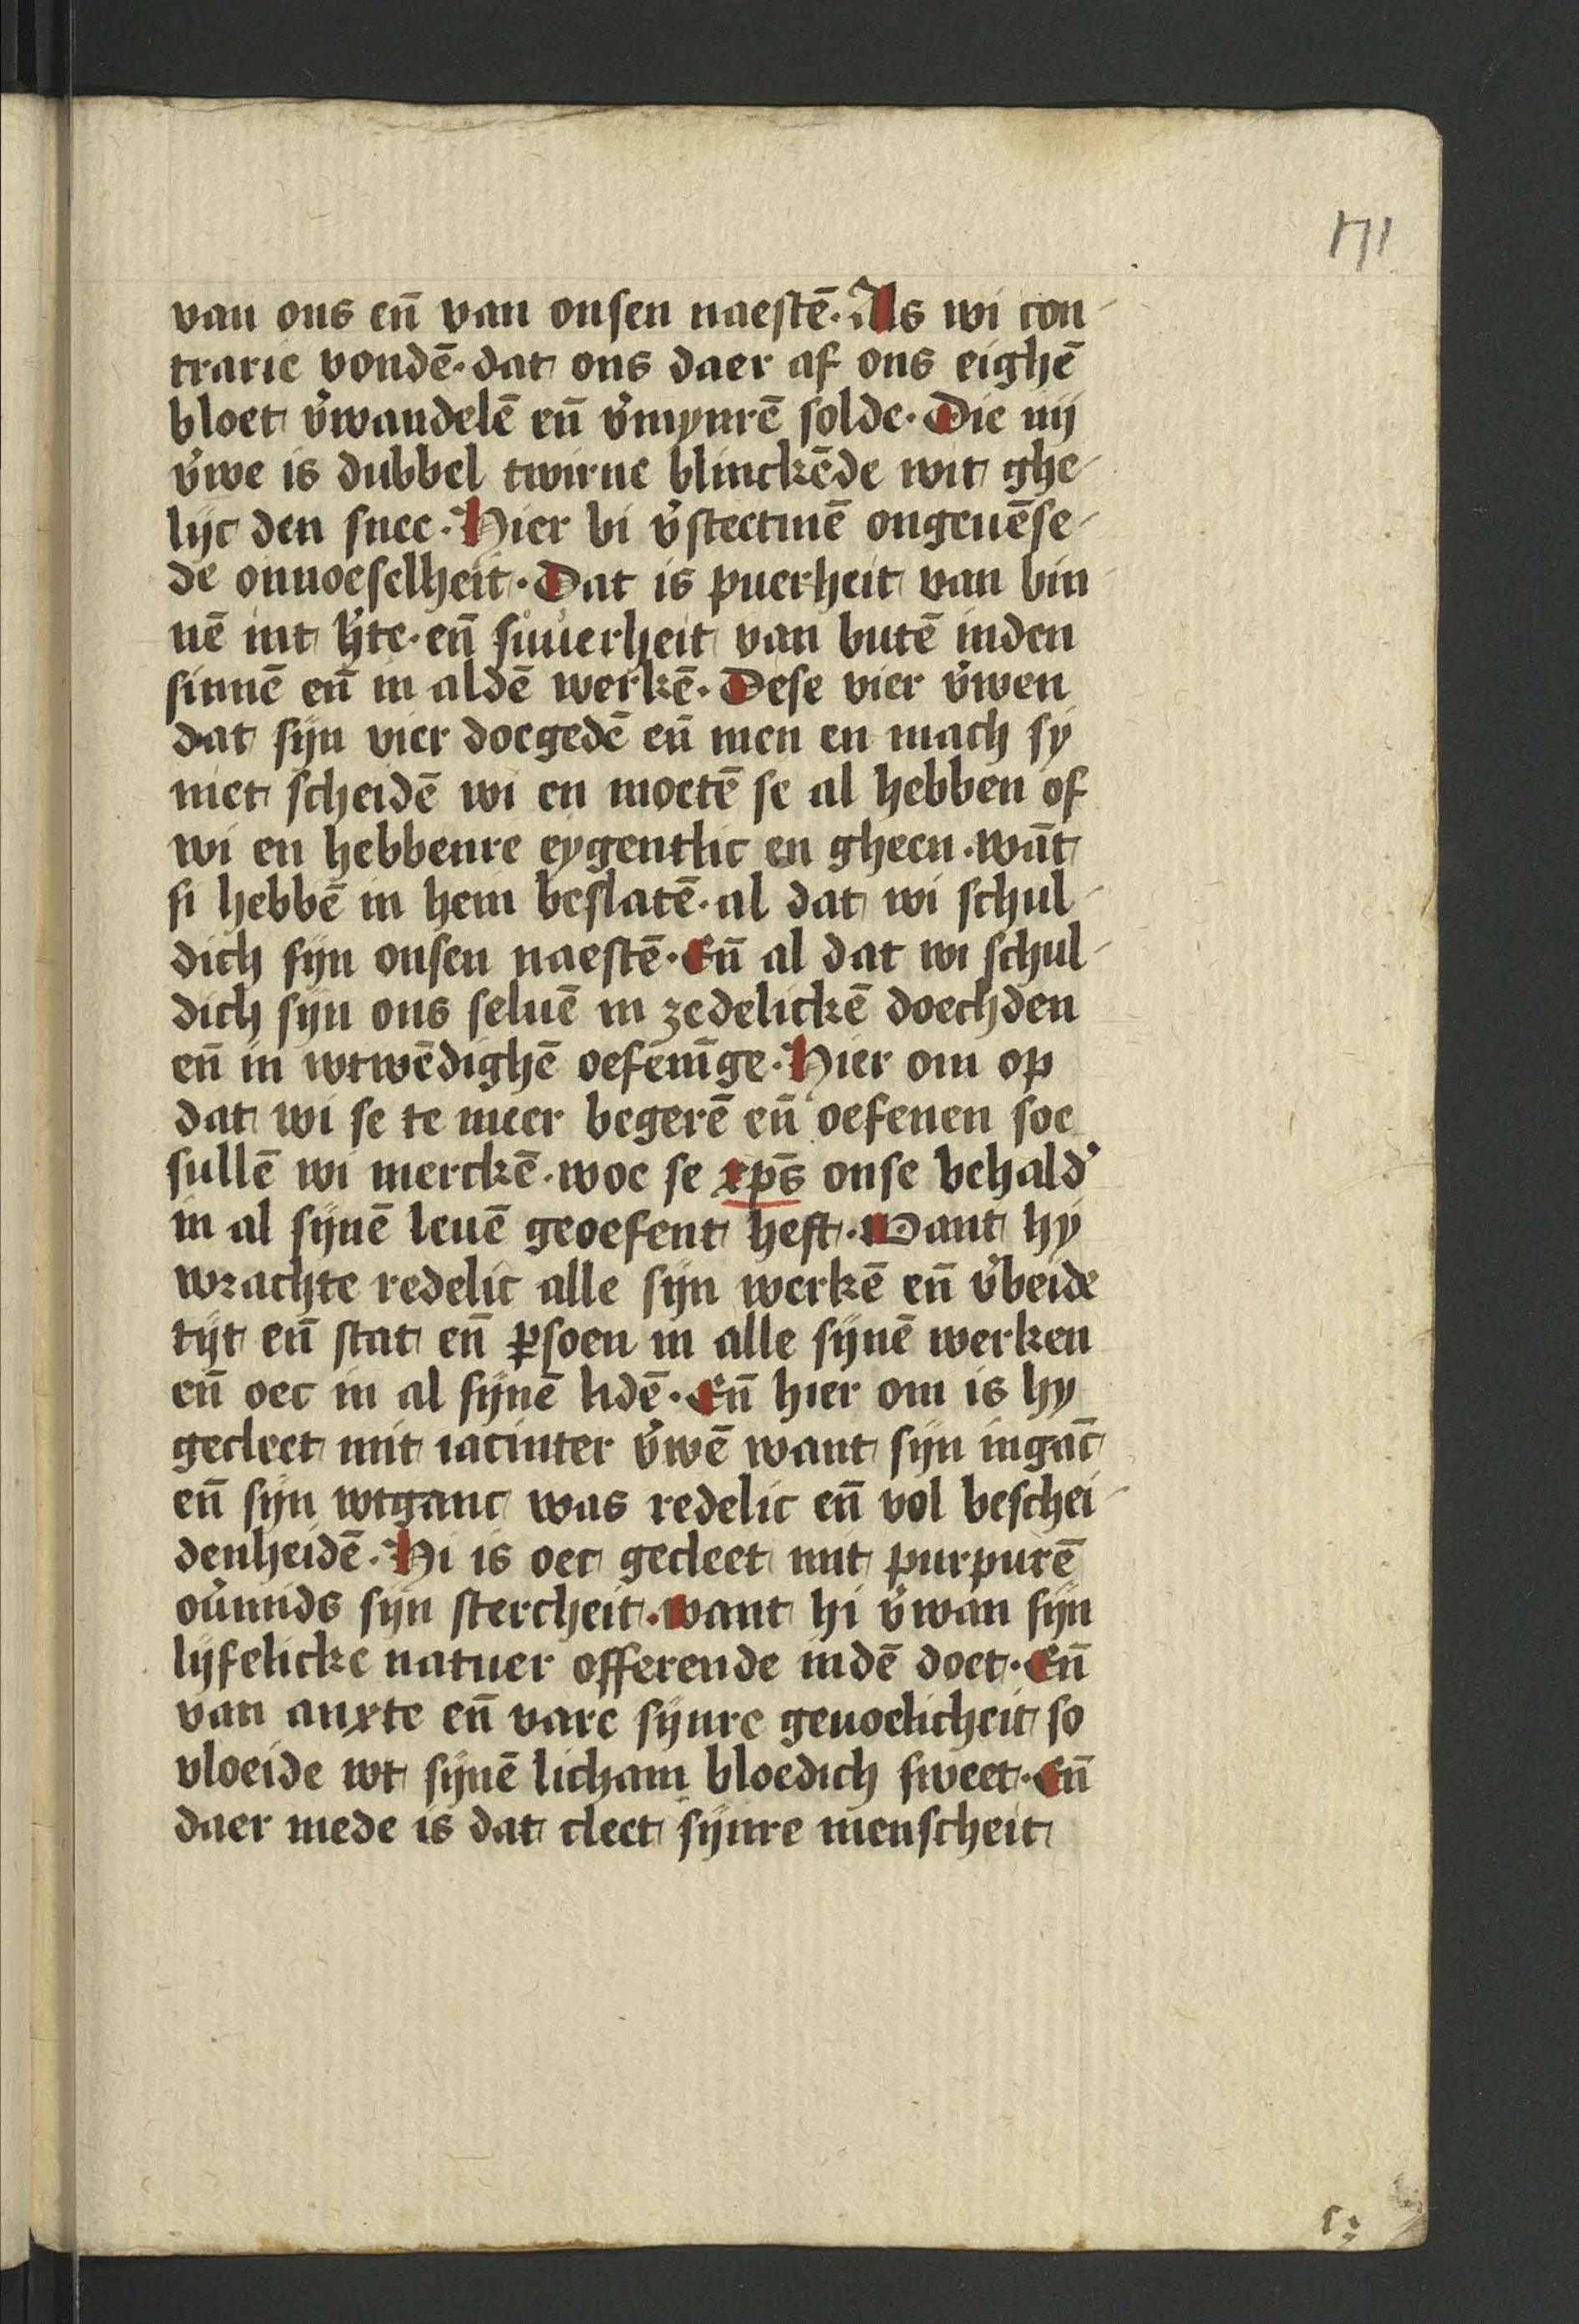 171
van ons en̄ van onsen naestē. Als wi con-
trarie vondē. dat ons daer af ons eighē
bloet v̓wandelē en̄ v̓mynrē solde. Die iiij
v̓we is dubbel twirne blinckēde wit ghe-
lijc den snee. Hier bi v̓stectmē ongeuēse-
de onnoeselheit. Dat is puerheit van bin-
nē int h̓te. en̄ suuerheit van butē inden
sinnē en̄ in aldē werkē. Dese vier v̓wen
dat sijn vier doegedē en̄ men en mach sy
niet scheidē wi en moetē se al hebben of
wi en hebbenre eygentlic en gheen. wāt
si hebbē in hem beslatē. al dat wi schul-
dich sijn onsen naestē. En̄ al dat wi schul-
dich sijn ons seluē in zedelickē doechden
en̄ in wtwēdighē oefēnīge. Hier om op
dat wi se te meer begerē en̄ oefenen soe
sullē wi merckē. woe se xp̄s onse behald̓
in al sijnē leuē geoefent heft. Want hy
wrachte redelic alle sijn werkē en̄ v̓beide
tijt en̄ stat en̄ ꝑsoen in alle sijnē werken
en̄ oec in al sijnē lidē. En̄ hier om is hy
gecleet mit iacinter v̓wē want sijn ingāc
en̄ sijn wtganc was redelic en̄ vol beschei-
denheidē. Hi is oec gecleet mit purpurē
ou̓mids sijn stercheit. want hi v̓wan sijn
lijfelicke natuer offerende indē doet. En̄
van anxte en̄ vare sijnre geuoelicheit so
vloeide wt sijnē licham bloedich sweet. En̄
daer mede is dat cleet sijnre menscheit